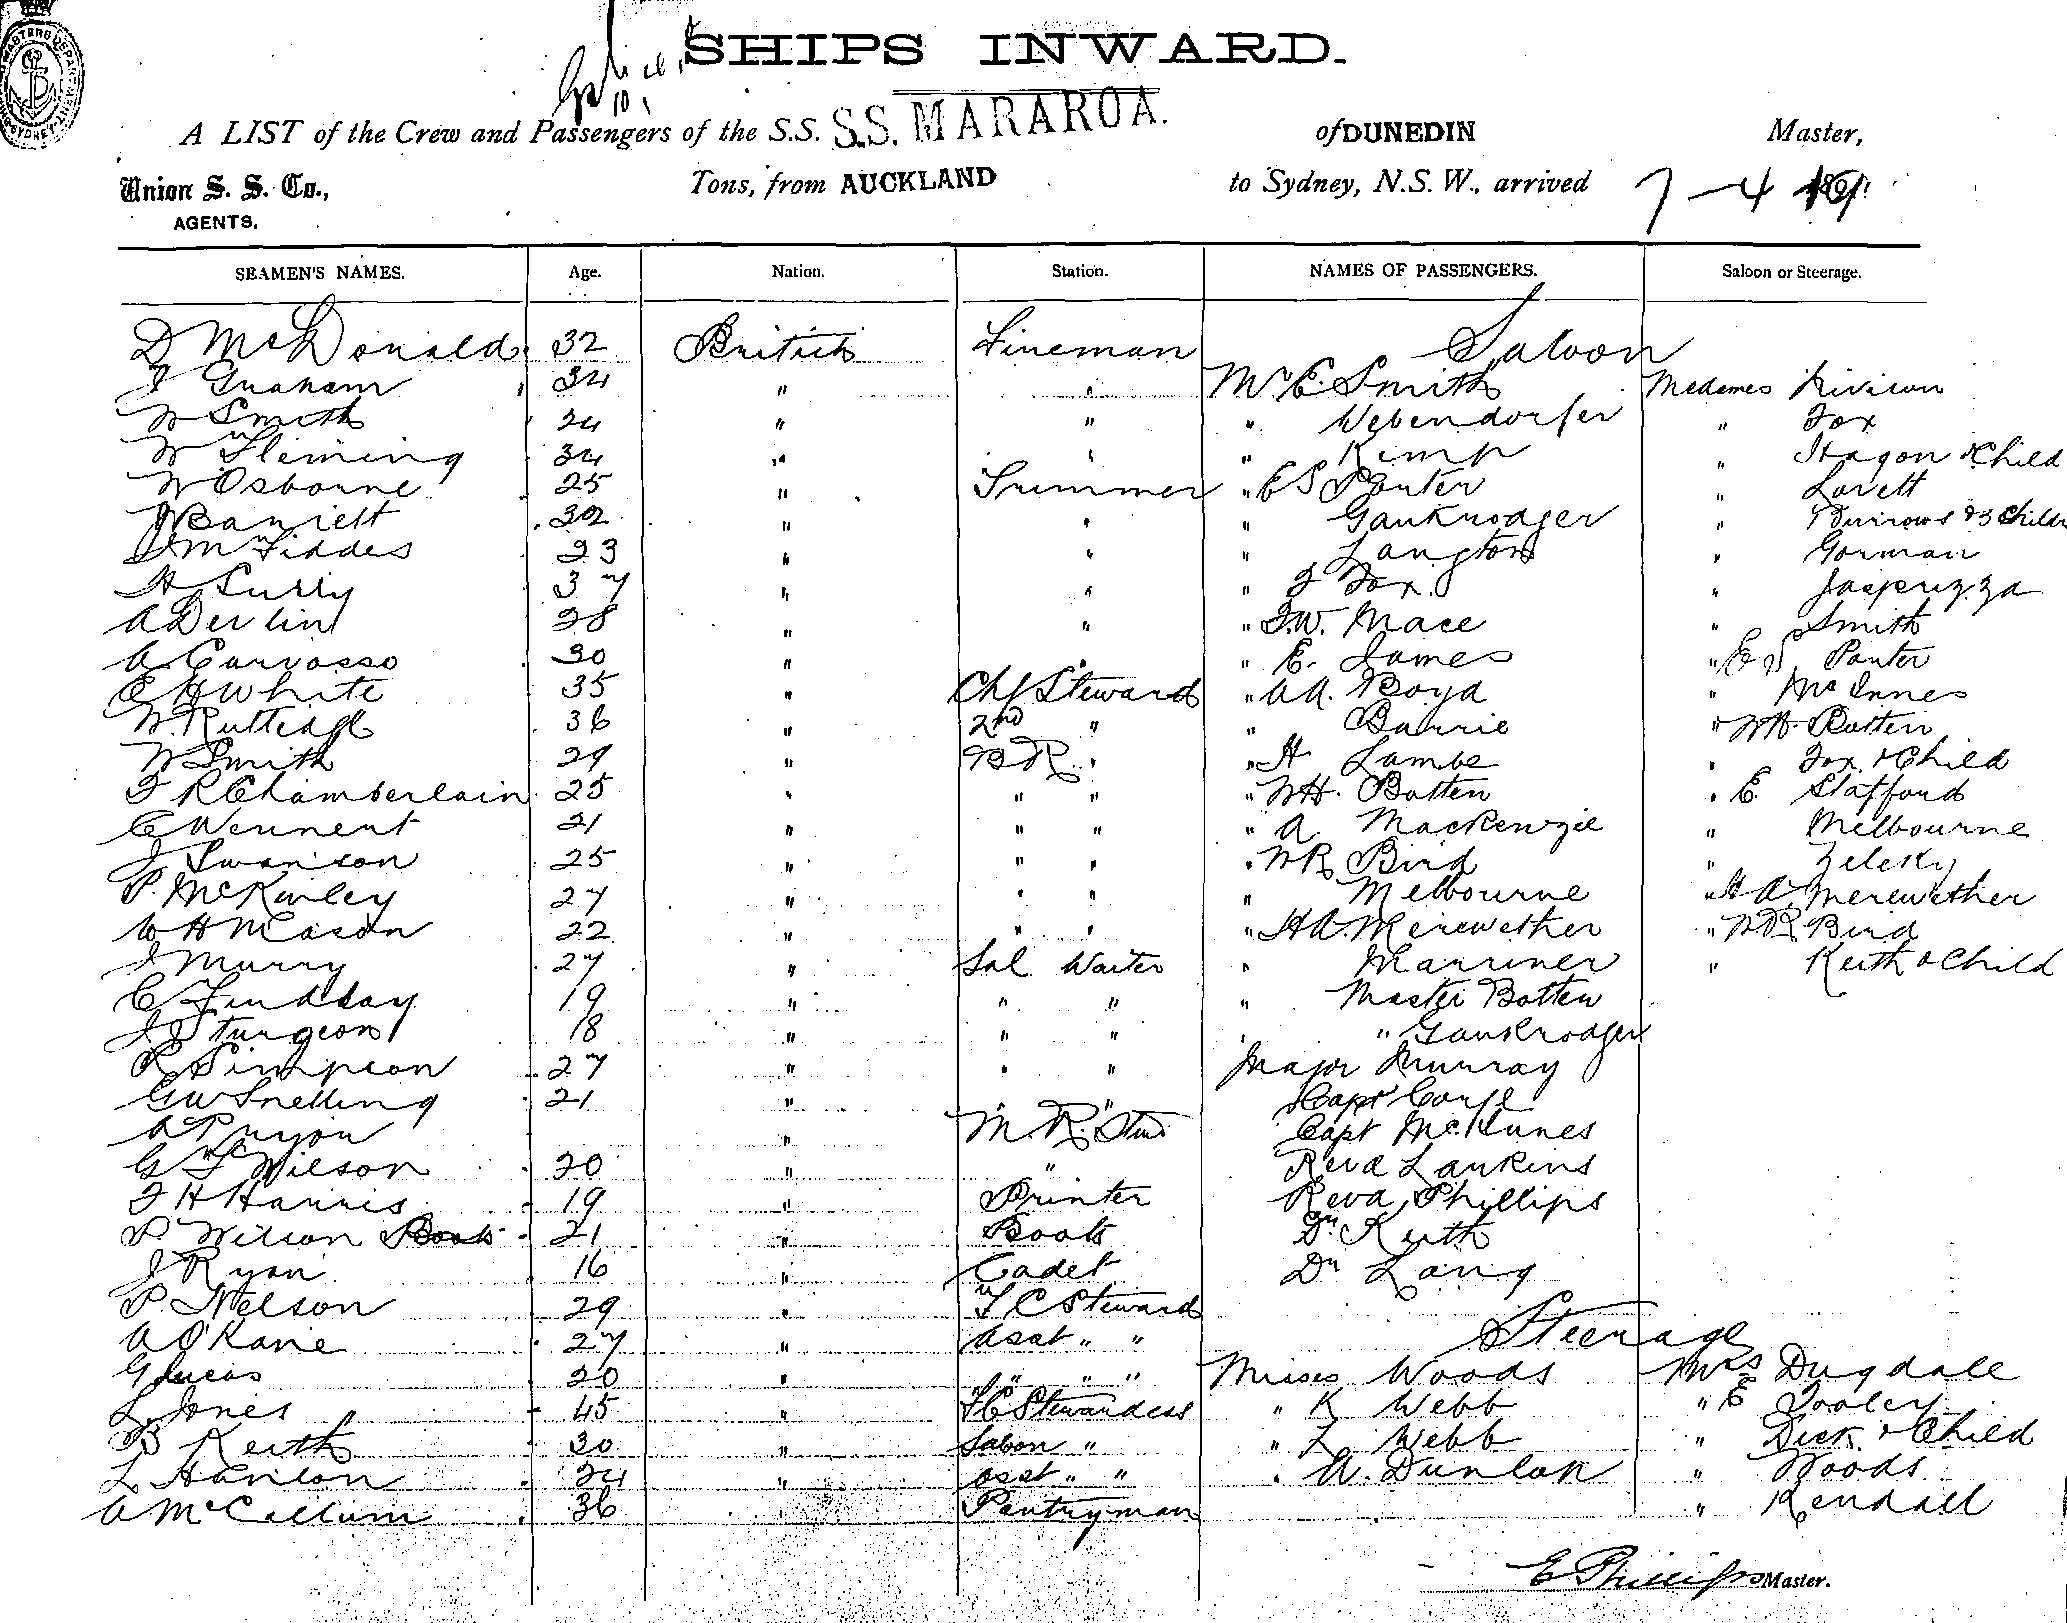 SHIPS INWARD.
A LIST of the Crew and Passengers of the S.S. S.S. MARAROA. of DUNEDIN Master,
Union S. S. Co., Tons, from AUCKLAND to Sydney, N.S.W., arrived 7-4
AGENTS.
SEAMEN'S NAMES. Age. Nation. Station. NAMES OF PASSENGERS. Saloon or Steerage.
D McDonald 32 British Fireman Saloon
J Graham 34 " " Mr E. Smith Medames
W Smith 24 " " " Webendorfer " Fox
W Fleming 34 " " " Kemp " Hagon & Child
W Osborne 25 " Trimmer " E S Panter " Lovett
J 32 " " " Gaukrodger " Burrows & 3 Childr
23 " " " Langton " Gorman
H Curry 37 " " " J Fox. "
A Devlin 28 " " " F.W. Mace " Smith
A Carvosso 30 " " " E. James " E S. Panter
C H White 35 " Chf Steward " A A. Boyd " McInnes
W. Rutledge 36 " 2nd " " Barrie " W H. Botten
W Smith 29 " B R. " " H Lambe " Fox & Child
F R Chamberlain 25 " " " " W H. Botten " E. Stafford
C 21 " " " " A. Mackenzie " Melbourne
J Swanson 25 " " " " W R Bird " Zelesky
P. McKinley 27 " " " " Melbourne " H A Merewether
W H Mason 22 " " " " H A. Merewether " W R Bird
J Murry 27 " Sal Waiter " Marriner " Keith & Child
C Lindsay 19 " " " " Master Botten
J Sturgeon 18 " " " " " Gaukrodger
R Simpson 27 " " " Major Murray
G W Snelling 21 " " " Capt
A Pryon " M. R. Stwd Capt McInnes
G Wilson 20 " " Revd Larkins
F H Harris 19 " Printer Revd Phillips
P Wilson 21 " Boots Dr Keith
J Ryan 16 " Cadet Dr Lang
P. Nelson 29 " F C Steward
A O'Kane 27 " Asst " " Steerage
G Lucas 20 " " " " " Misses Woods Mrs Dugdale
L. Jones 45 " F C Stewardess " K Webb " E Tooley
B Keith 30 " Saloon " " L Webb " Dick & Child
L Hanlon 24 " Asst " " " A. Dunlop " Woods
A McCallum 36 " Pantryman " Kendall
E Phillips Master.